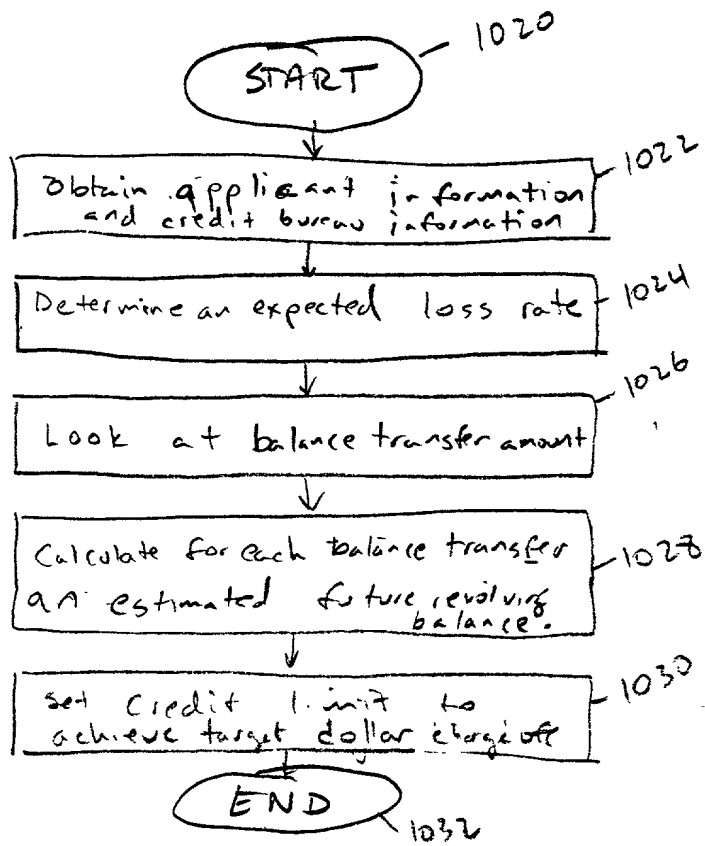 1020
START
1022
Obtain applicant information
and credit bureau information
1024
Determine an expected loss rate
1026
Look at balance transfer amount
Calculate for each balance transfer
1028
an estimated future revolving
balance.
1030
set credit limit to
achieve target dollar chargeoff
END
1032